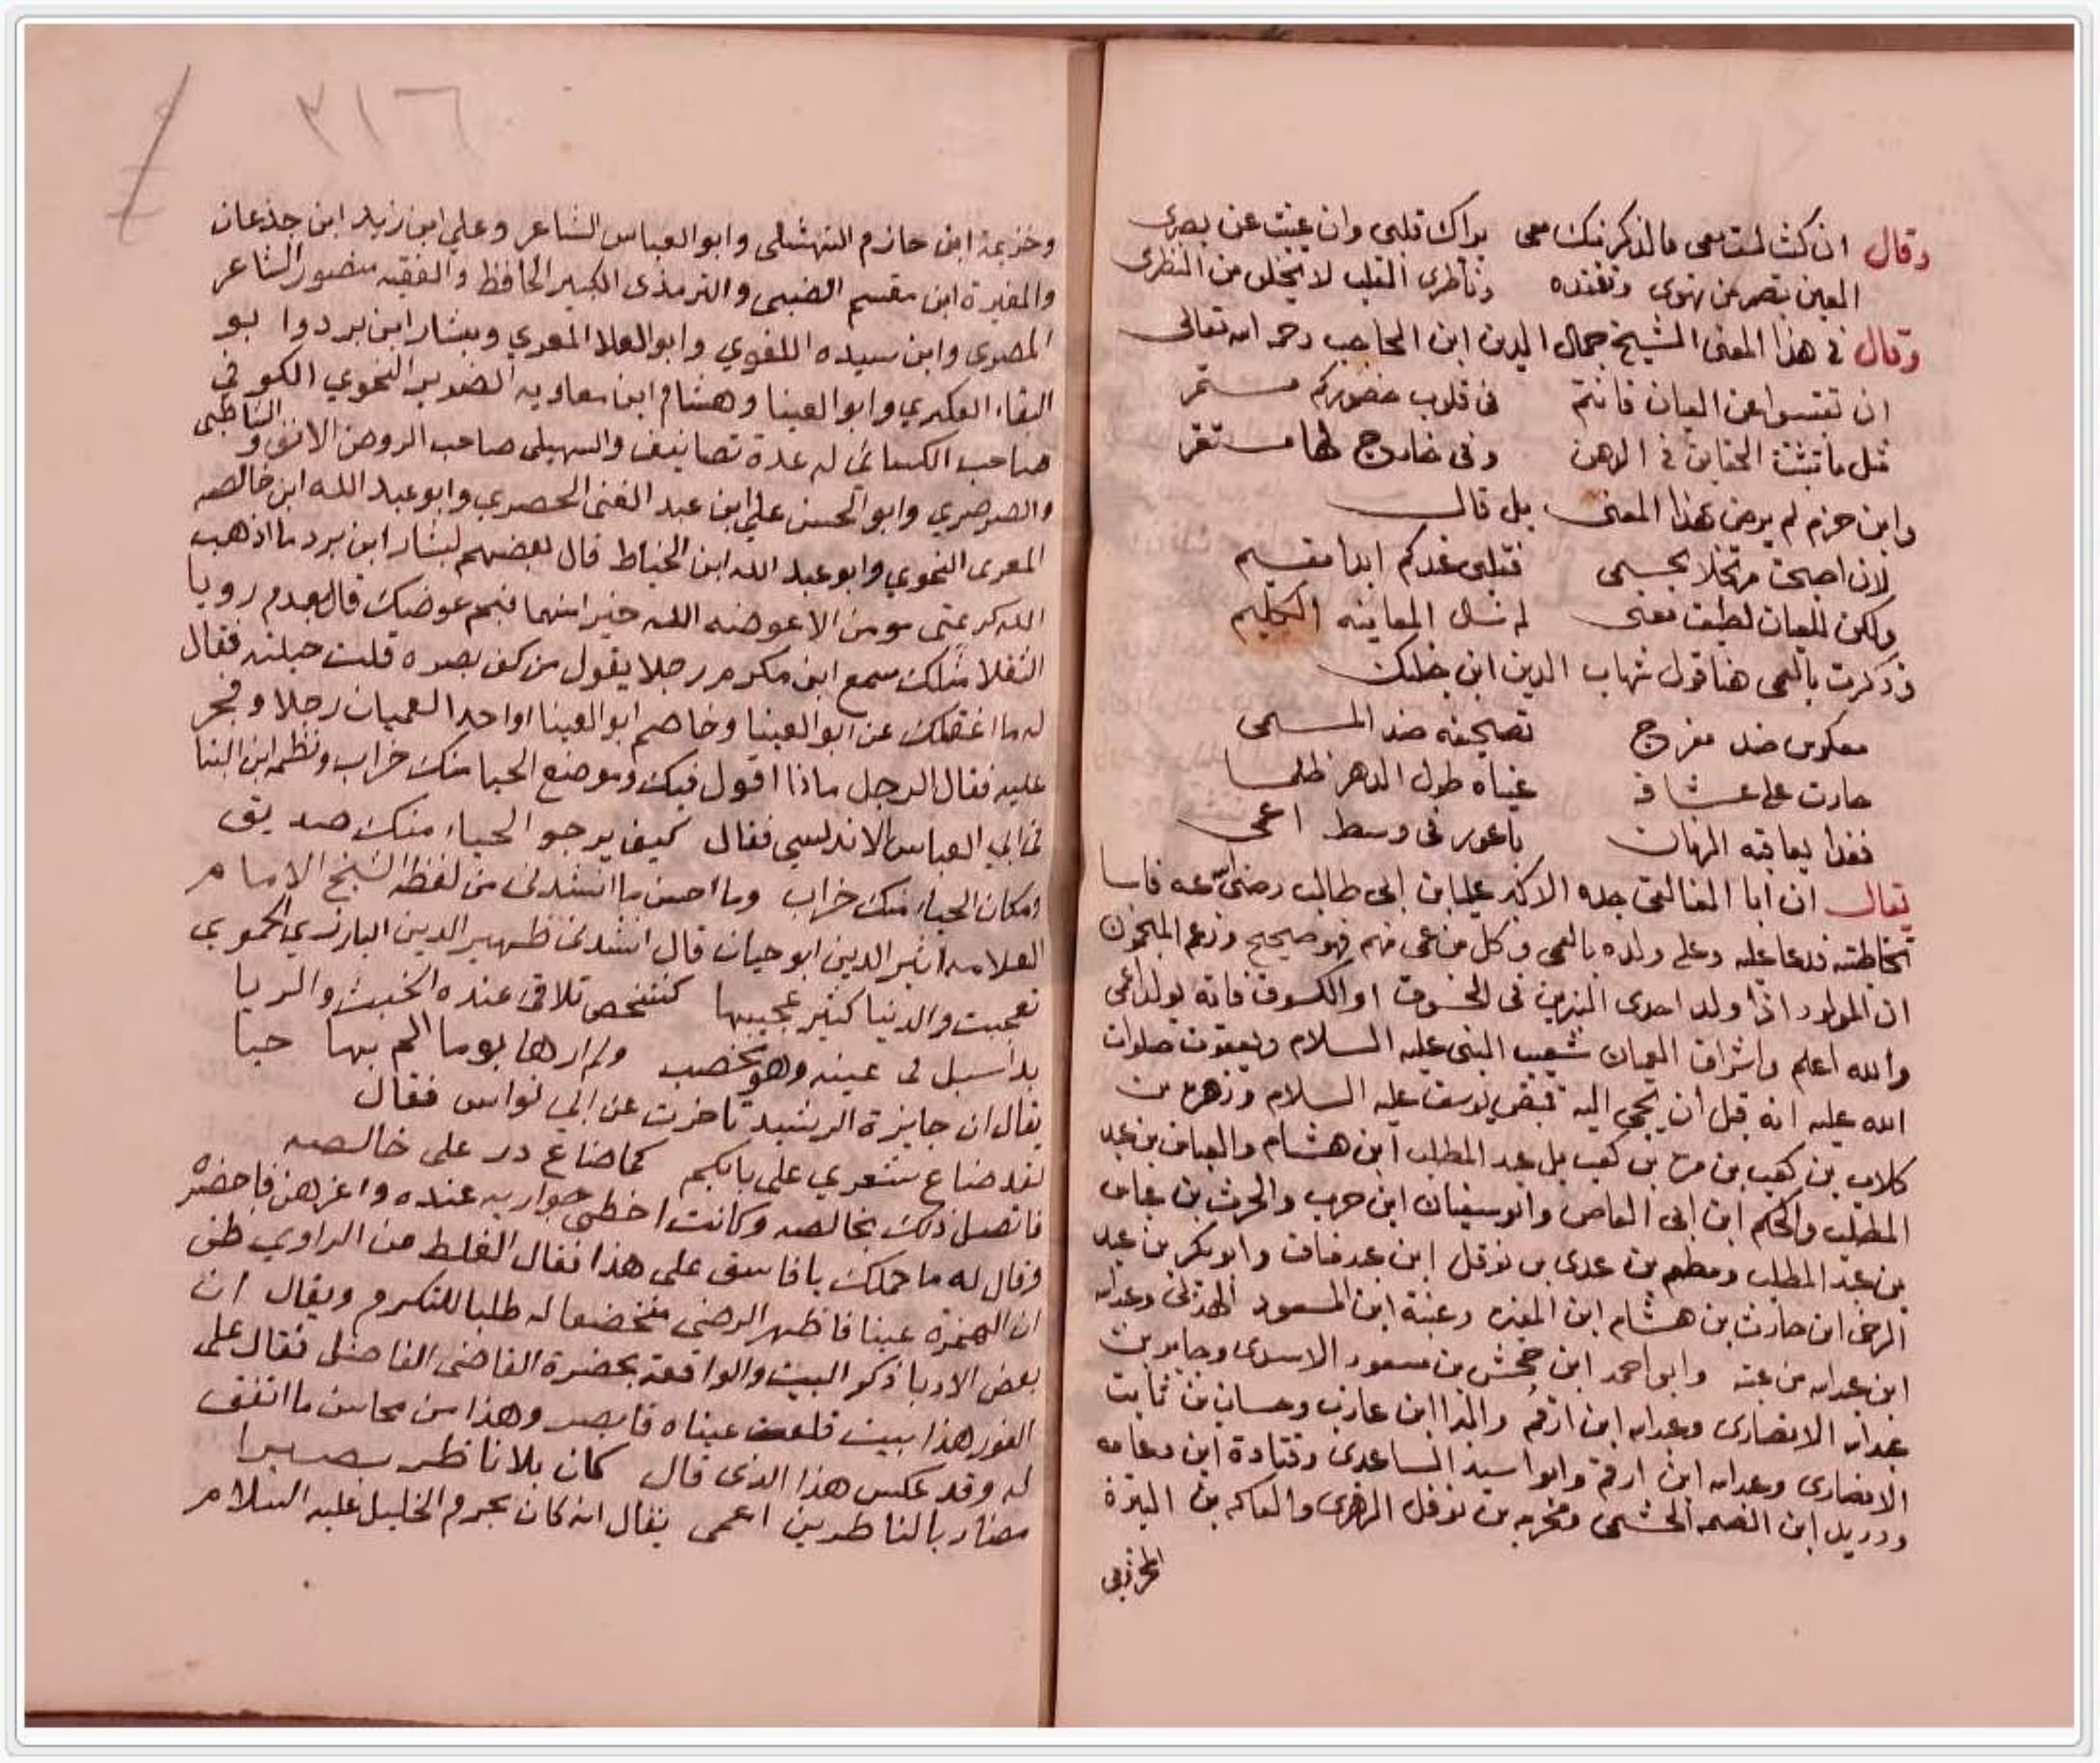 وقال ان كنت لست معي فالذكر منك معي يراك قلبي وان غبت عن بصري
العين تبصر من تهوى وتفقده وناظري القلب لا يخلى من النظري
وقال في هذا المعنى الشيخ جمال الدين ابن الحاجب رحمه الله تعالى
ان تغيبوا عن العيان فانتم في قلوب حضوركم مستمر
مثل ما تثبت الحقايق في الذهن وفي خارج لها مستقر
وابن حزم لم يرض بهذا المعنى بل قال
لان اصبحت مرتحلا بجسمي فقلبي عندكم ابدا مقيم
ولكن للعيان لطيف معنى له سال المعاينه الكليم
وذكرت بالعمى هنا قول شهاب الدين ابن
معكوس ضد مفرج تصحيفه ضد المسمى
جارت على عشاقه عيناه طول الدهر ظلما
فغدا يعاقبه الزمان باعور في وسط اعمى
يقال ان ابا العنا لقي جده الاكبر علي ابن ابي طالب رضي الله عنه فاسا
مخاطبته فدعا عليه وعلى ولده بالعمى وكل من عمي منهم فهو صحيح وزعم المنجمون
ان المولود اذا ولد احدى النيرين في الخسوف او الكسوف فانه يولد اعمى
والله اعلم واشراف العميان شعيب النبي عليه السلام ويعقوب صلوات
الله عليه انه قبل ان يجي اليه بقميص يوسف عليه السلام وزهره بن
كلاب بن كعب بن مره بن كعب بل عبد المطلب ابن هشام والعباس بن عبد
المطلب والحكم ابن ابي العاص وابو سفيان ابن حرب والحرث بن عباس
بن عبد المطلب ومطعم بن عدي بن نوفل ابن عبد مناف وابو بكر بن عبد
الرحمن ابن حارث بن هشام ابن المغيره وعتبة ابن المسعود الهذلي وعبد الله
ابن عبد الله بن عتبه وابو احمد ابن جحش بن مسعود الاسدي وجابر بن
عبد الله الانصاري وعبد الله ابن ارقم والبرا ابن عازب وحسان بن ثابت
الانصاري وعبد الله ابن ارقم وابو اسيد الساعدي وقتادة ابن دعامه
ودريد ابن الصمه الجشمي ومخرمه بن نوفل الزهري والفاكه بن المغيرة
وخزيمة ابن حازم النهشلي وابو العباس الشاعر وعلي ابن زيد ابن جذعان
٣١٦
والمغيرة ابن مقسم الضبي والترمذي الكبير الحافظ والفقيه منصور الشاعر
المصري وابن سيده اللغوي وابو العلا المعري وبشار ابن برد وابو
البقاء العكبري وابو العينا وهشام ابن معاويه الضرير النحوي الكوفي
صاحب الكسائي له عدة تصانيف والسهيلي صاحب الروض الانف والشاطبي
والصرصري وابو الحسن علي ابن عبد الغني الحصري وابو عبد الله ابن خالصه
المعرى النحوي وابو عبد الله ابن الخياط قال بعضهم لبشار ابن برد ما اذهب
الله كريمتي مومن الا عوضه الله خيرا منهما فبم عوضك قال بعدم رويا
الثقلا مثلك سمع ابن مكرم رجلا يقول من كف بصره قلت حيلته فقال
له ما اغفلك عن ابو العينا وخاصم ابو العينا او احد العميان رجلا وفجر
عليه فقال الرجل ماذا اقول فيك وموضع الحيا منك خراب ونظمه ابن البنا
في ابي العباس الاندلسي فقال كيف يرجو الحياء منك صديق
ومكان الحياء منك خراب وما احسن ما انشدني من لفظه الشيخ الامام
العلامه اثير الدين ابو حيان قال انشدني ظهير الدين البارزي الحموي
تعجبت والدنيا كثير عجيبها كشخص تلاقى عنده الخبث والريا
بدا سبل في عينه وهو مخصب ولم ارها يوما الم بها حيا
يقال ان جايزة الرشيد تاخرت عن ابي نواس فقال
لقد ضاع شعري على بابكم كما ضاع در على خالصه
فاتصل ذلك بخالصه وكانت احظى جواريه عنده واعزهن فاحضره
وقال له ما حملك يا فاسق على هذا فقال الغلط من الراوي ظن
ان الهمزة عينا فاظهر الرضى منخضعا له طلبا للتكرم ويقال ان
بعض الادبا ذكر البيت والواقعة بحضرة القاضي الفاضل فقال على
الفور هذا بيت قلعت عيناه فابصر وهذا من محاسن ما اتفق
له وقد عكس هذا الذي قال كان بلا ناظر بصيرا
فصار بالناظرين اعمى يقال انه كان بجرم الخليل عليه السلام